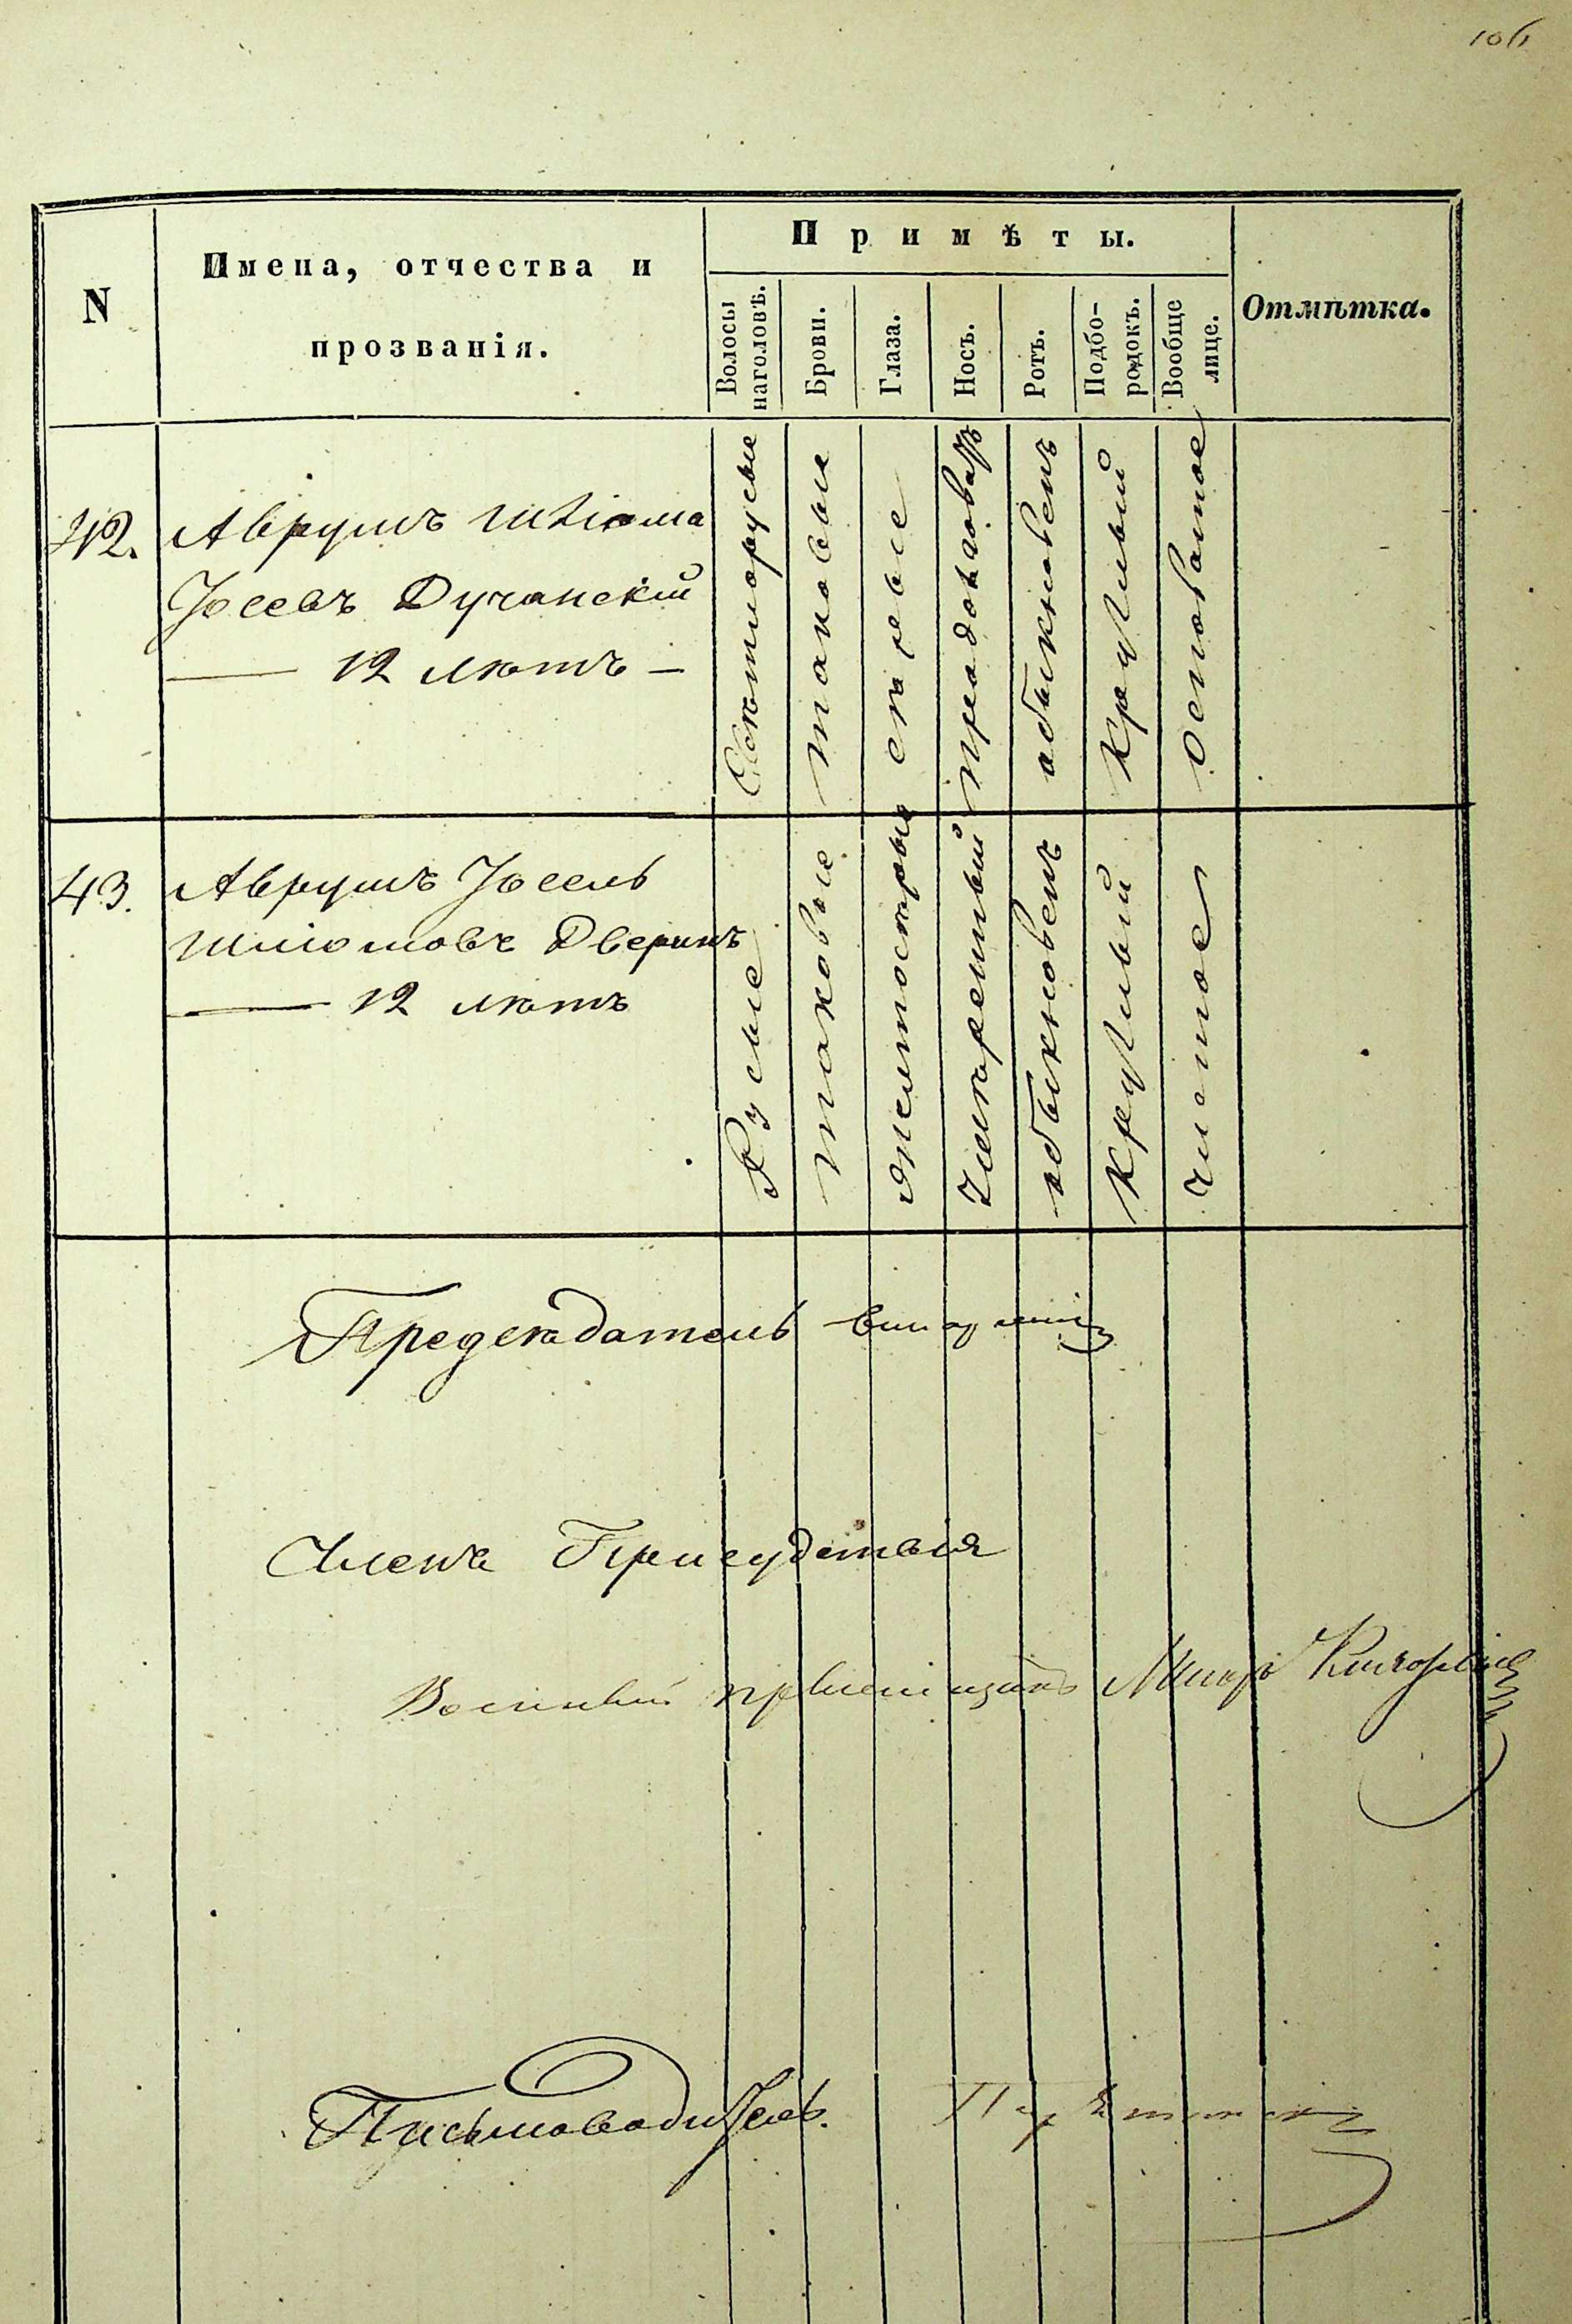 106
N
Имена, отчества и
прозванія.
Примѣты.
Волосы
наголовѣ.
Брови.
Глаза.
Носъ.
Ротъ.
Подбо-
родокъ.
Вообще
лице.
Отмѣтка.
42.
Аврумъ Шліома
Іосевъ Дучанскій
— 12 лѣтъ —
Свѣтлорусые
таковые
сѣрые
продолговатъ
обыкновенъ
круглый
осповатое
43.
Аврумъ Іосель
Шліомовъ Дверинъ
— 12 лѣтъ
Русые
таковые
желтосѣрые
умѣренный
обыкновенъ
круглый
чистое
Председатель
Члены Присудствія
Военный пріемщикъ Маіоръ
Письмоводитель.